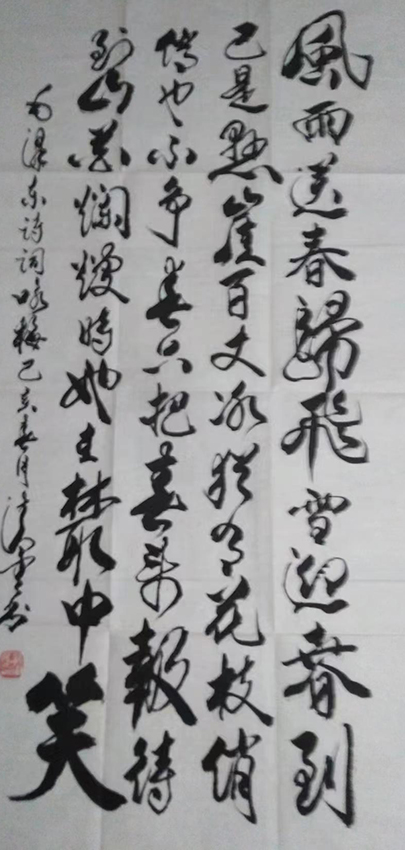 風雨送春歸飛雪迎春到
已是懸崖百丈冰猶有花枝俏
俏也不争春只把春来報待
到山花爛熳時她在叢中笑
毛澤东诗詞咏梅己亥春月书